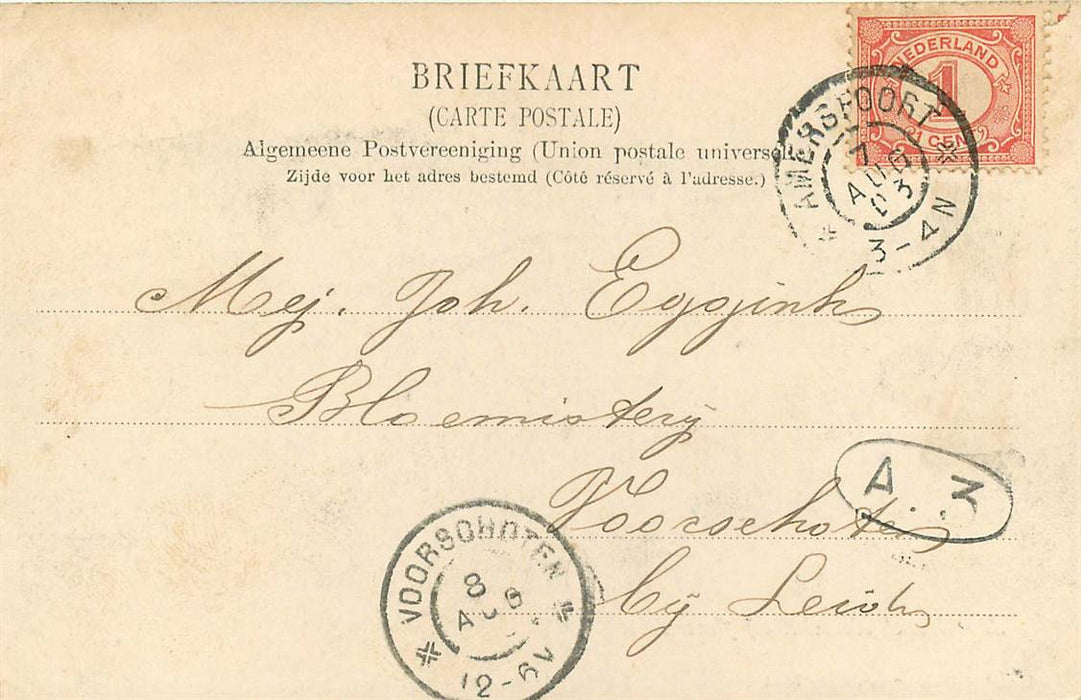 BRIEFKAART
(CARTE POSTALE)
Algemeene Postvereeniging (Union postale universel
Zijde voor het adres bestemd (Côté réservé à l'adresse.)
NEDERLAND
1
CENT
AMERSFOORT
7
AUG
03
3-4N
Mej. Joh. Eggink
Bloemisterij
Voorschoten
bij Leiden
A 3
VOORSCHOTEN
8
AUG
12-6V